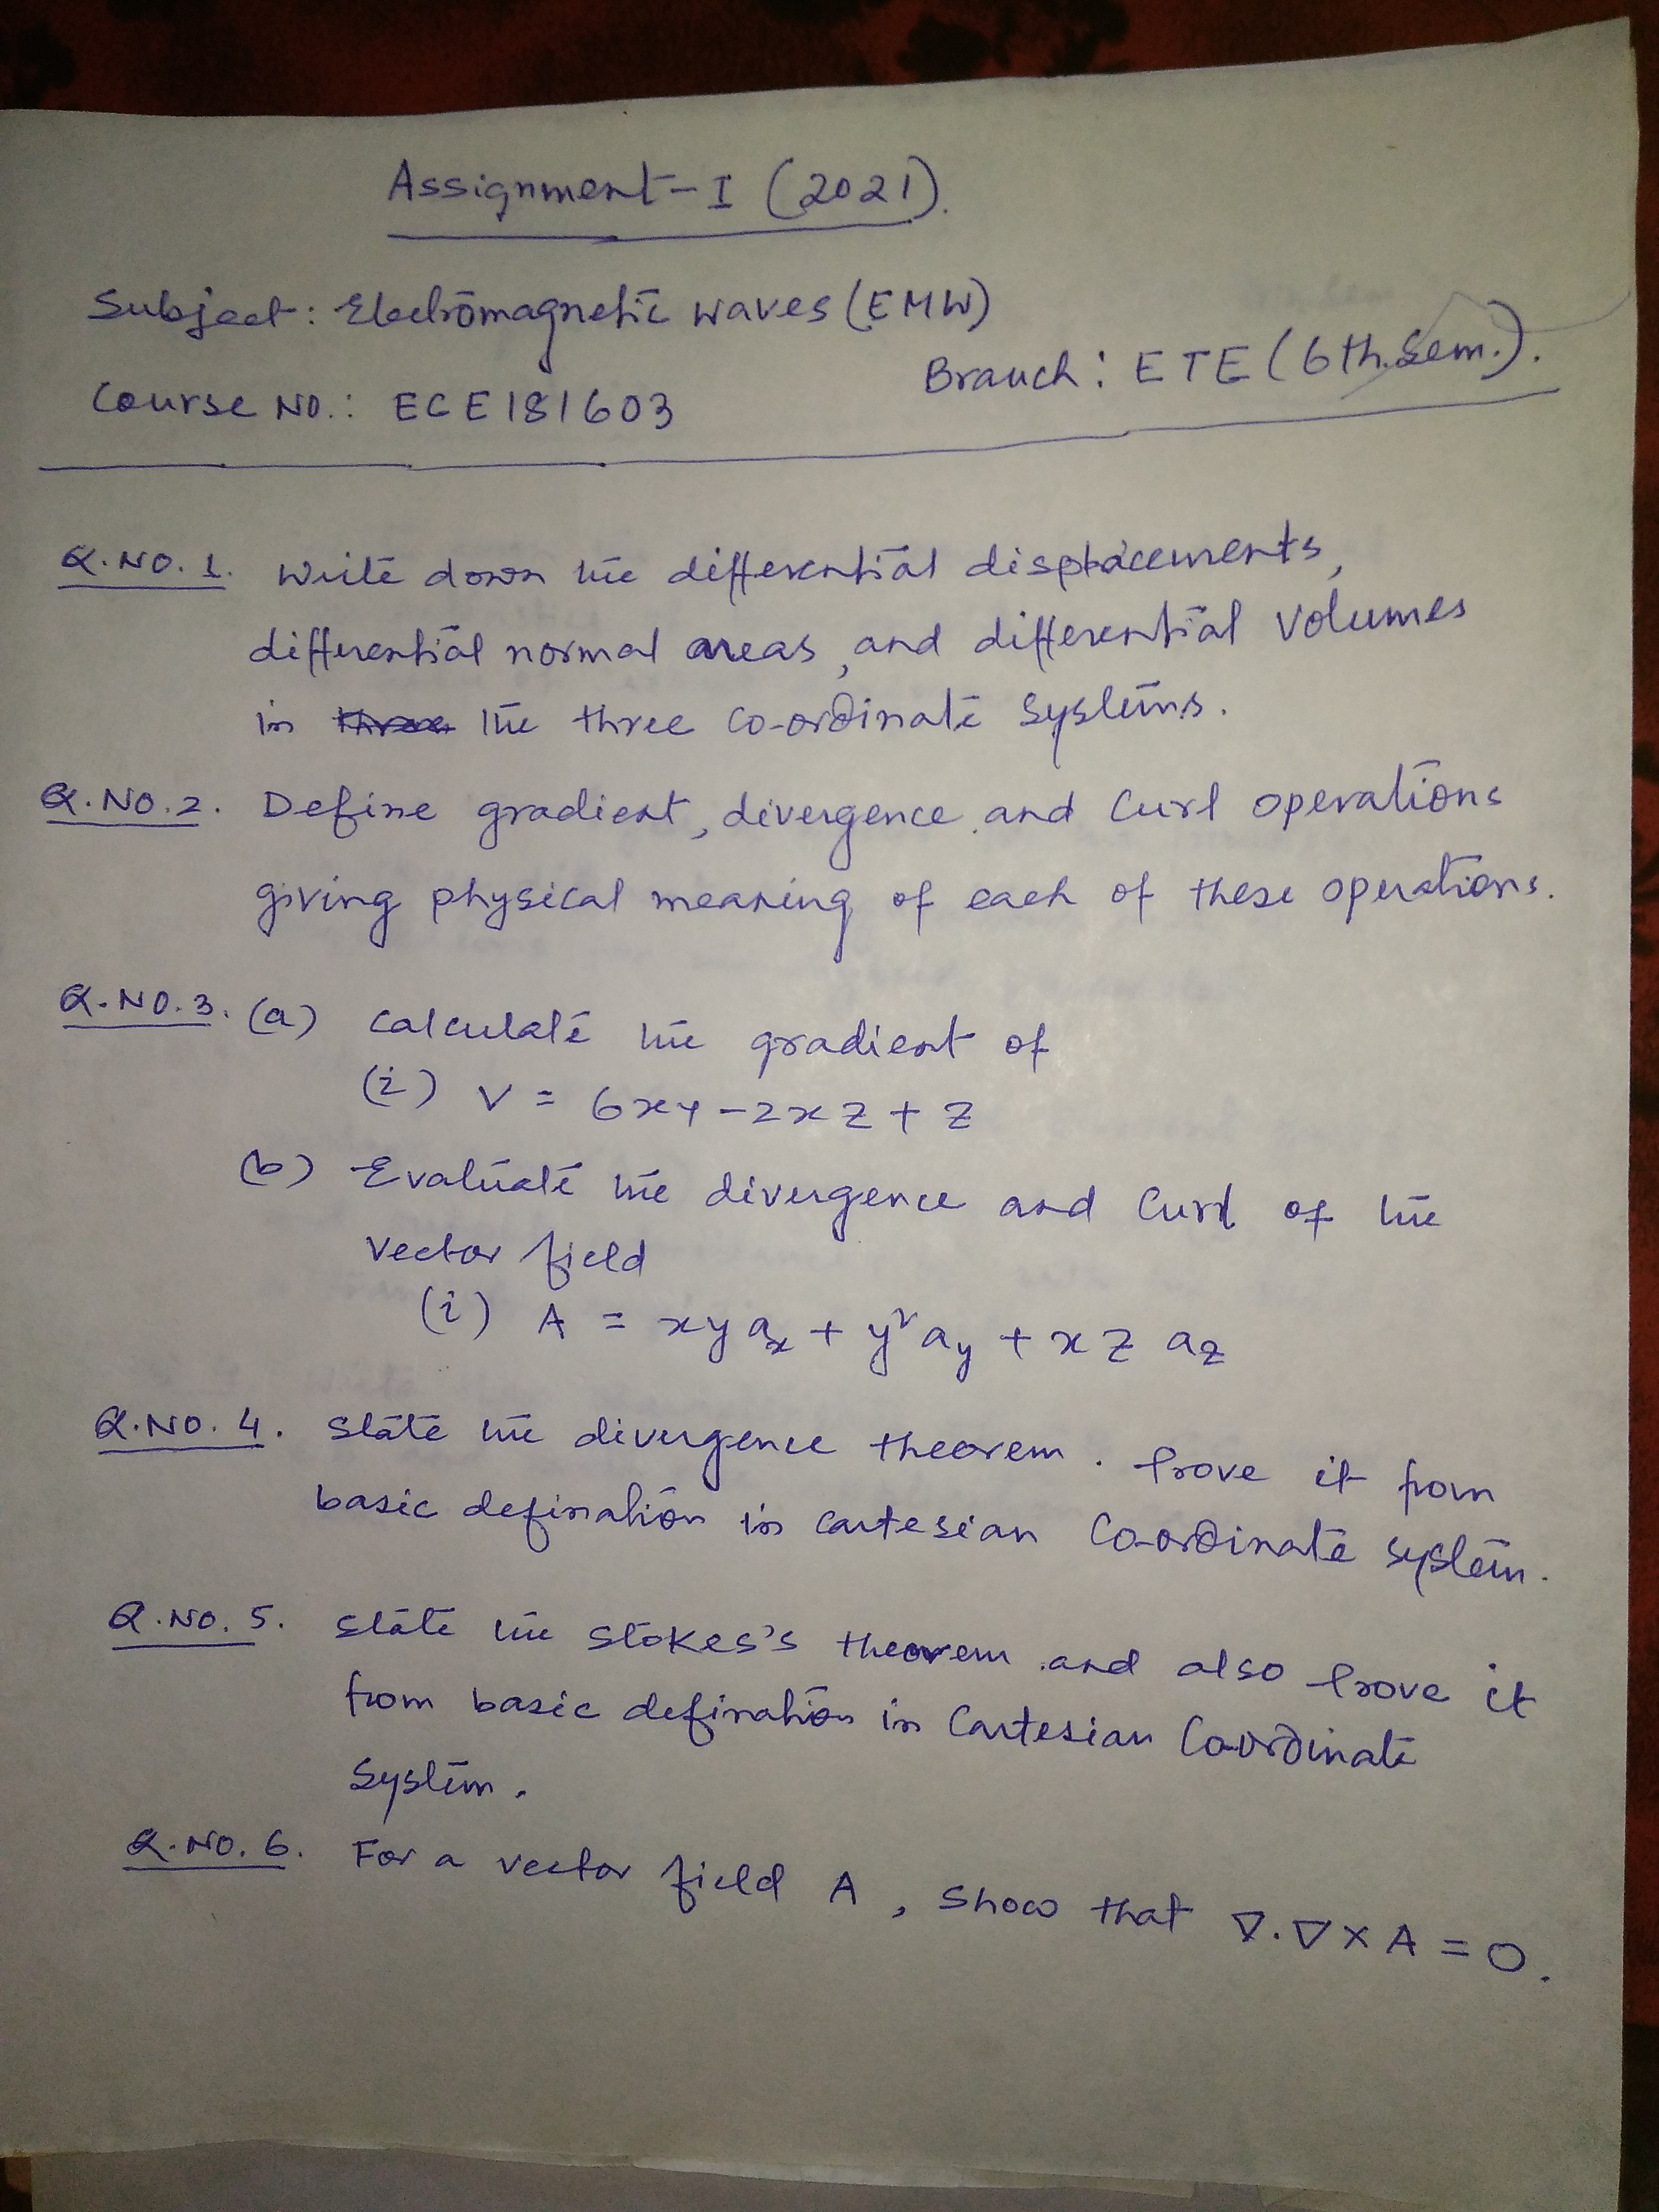 Assignment-I (2021).
Subject: Electromagnetic Waves (EMW)
Branch: ETE (6th. Sem.).
Course NO.: ECE181603
Q.NO.1. Write down the differential displacements,
differential normal areas, and differential volumes
in the three co-ordinate systems.
Q.NO.2. Define gradient, divergence and curl operations
giving physical meaning of each of these operations.
Q.NO.3. (a) Calculate the gradient of
(i) V = 6xy - 2xz + z
(b) Evaluate the divergence and curl of the
vector field
(i) A = xy aₓ + y² a_y + xz a_z
Q.NO.4. State the divergence theorem. Prove it from
basic defination in cartesian co-ordinate system.
Q.NO.5. State the Stokes's theorem and also prove it
from basic defination in Cartesian Co-ordinate
System.
Q.NO.6. For a vector field A, show that ∇.∇×A = 0.